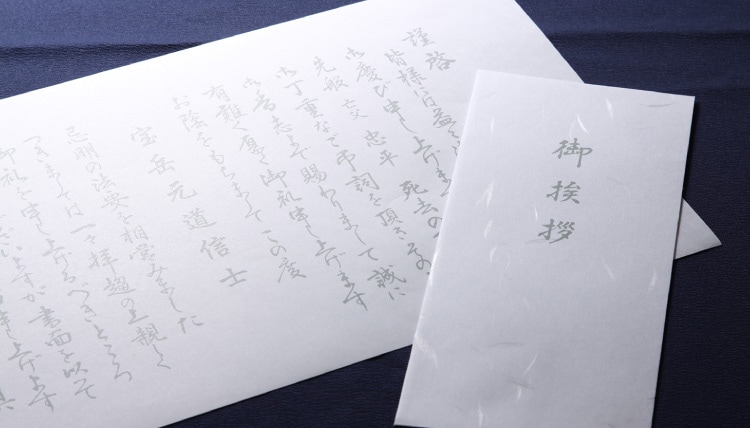 謹啓
皆様には益々
御慶び申し上げま
先般 亡父 忠平 死去の
御丁重なご弔詞を頂きその
御芳志まで賜わりまして誠に
有難く厚く御礼申し上げます
お陰をもちまして この度
宝岳元道信士
忌明の法要を相営みました
つきましては一々拝趨の上親しく
御礼を申し上げるべきところ
いますが書面を以て
申し上げます
具
御挨拶